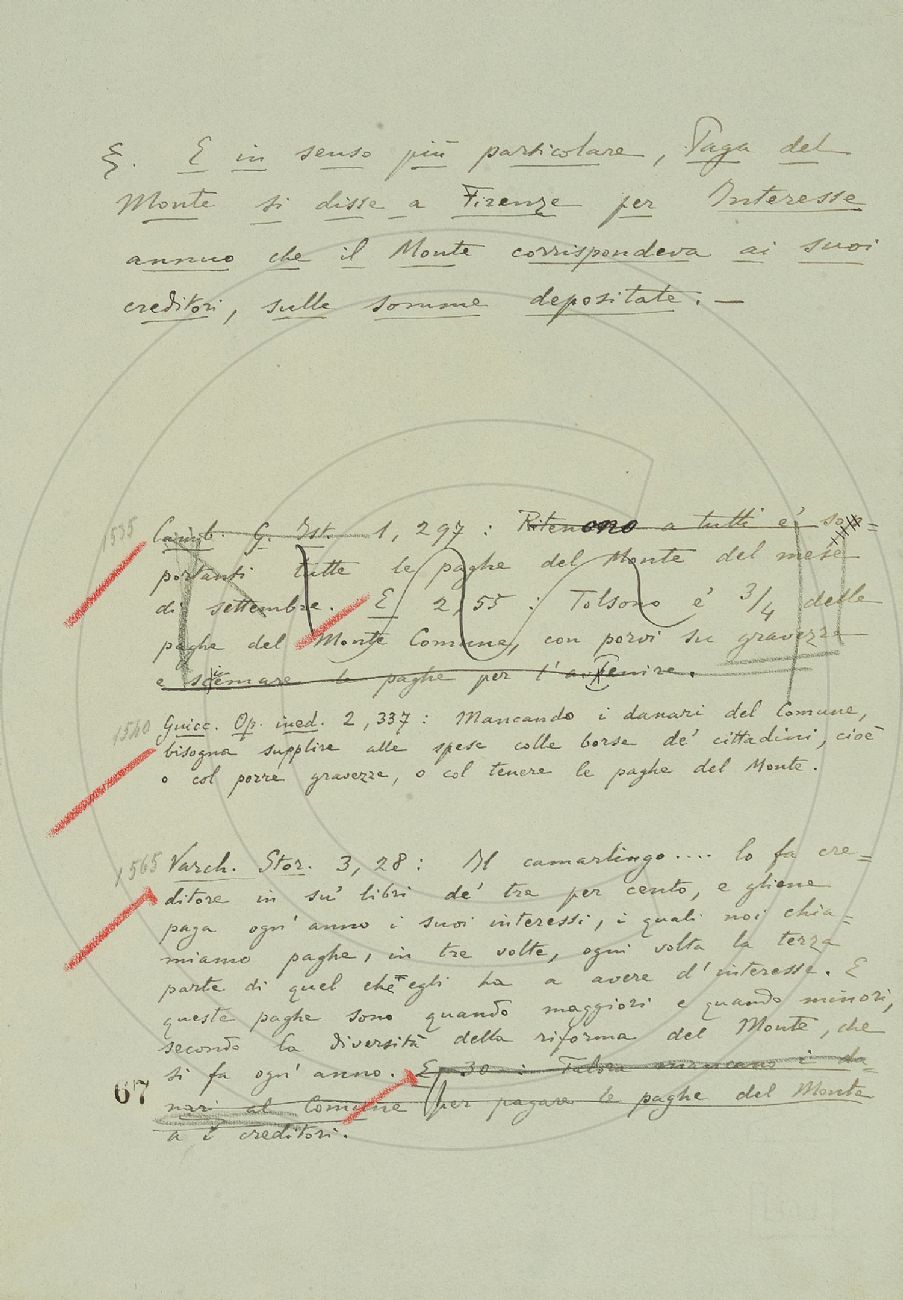 §. E in senso più particolare, Paga del
Monte si disse a Firenze per Interesse
annuo che il Monte corrispondeva ai suoi
creditori, sulle somme depositate: —
1535 Camb. G. Ist. 1, 297: Ritenono a tutti e' so=
portanti tutte le paghe del Monte del mese
di settembre. E 2, 55: Tolsono e' 3/4 delle
paghe del Monte Comune, con porvi su gravezza
e sciemare le paghe per l'avvenire.
1540 Guicc. Op. ined. 2, 337: Mancando i danari del Comune,
bisogna supplire alle spese colle borse de' cittadini, cioè
o col porre gravezze, o col tenere le paghe del Monte.
1565 Varch. Stor. 3, 28: Il camarlingo.... lo fa cre=
ditore in su' libri de' tre per cento, e gliene
paga ogn' anno i suoi interessi, i quali noi chia=
miamo paghe, in tre volte, ogni volta la terza
parte di quel che egli ha a avere d'interesse. E
queste paghe sono quando maggiori e quando minori,
secondo la diversità della riforma del Monte, che
si fa ogn' anno. E 30: Talora mancano i da=
nari al Comune per pagare le paghe del Monte
a i creditori.
67